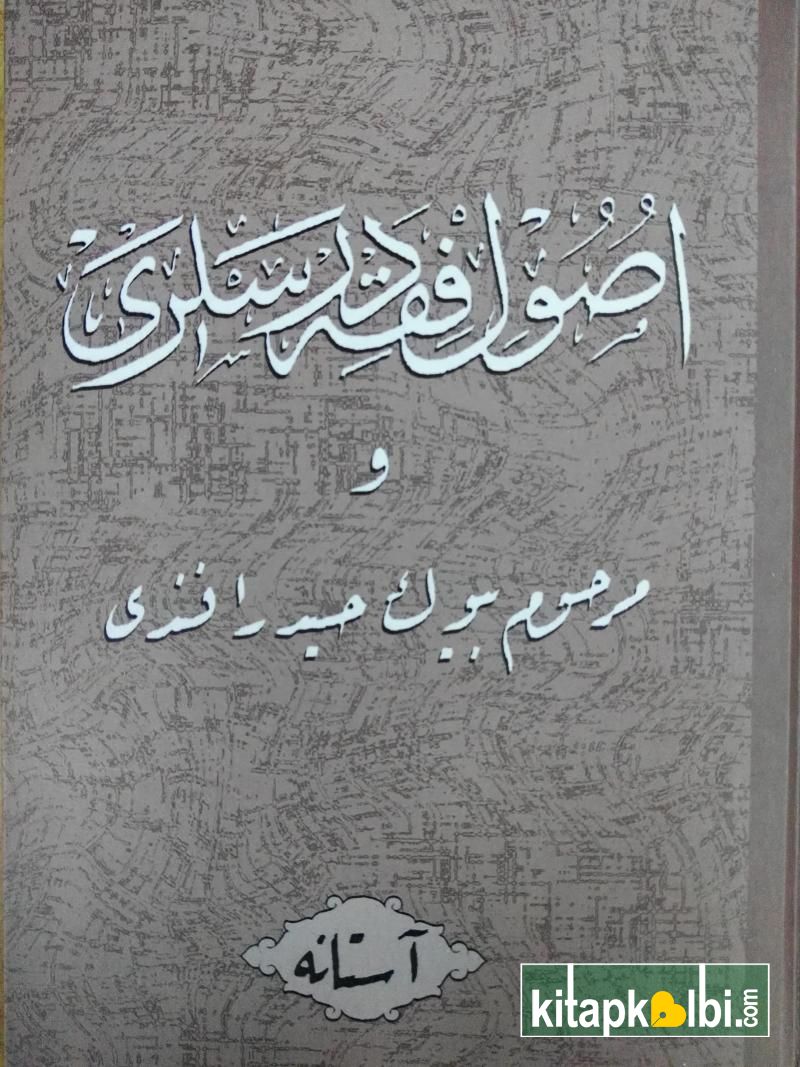 اصول فقه درسلری
و
مرحوم بیوك حیدر افندی
آستانه
kitapkalbi.com